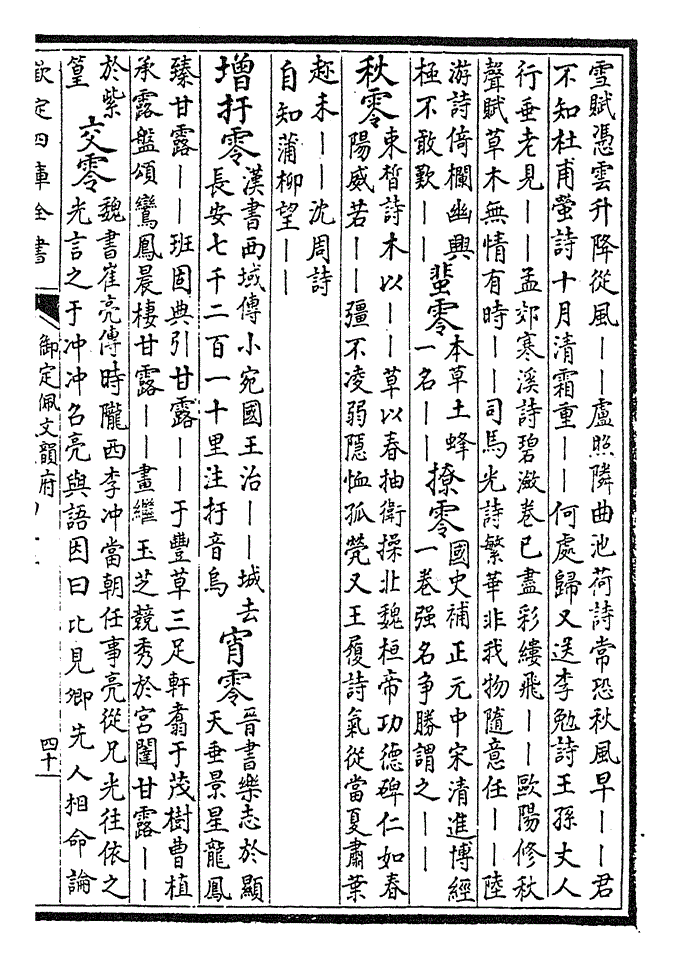 雪賦憑雲升降從風――盧照隣曲池荷詩常恐秋風早――君
不知杜甫螢詩十月清霜重――何處歸又送李勉詩王孫丈人
行垂老見――孟郊寒溪詩碧瀲卷已盡彩縷飛――歐陽修秋
聲賦草木無情有時――司馬光詩繁華非我物隨意任――陸
游詩倚欄幽興
極不敢歎――
蜚零
本草土蜂
一名――
撩零
國史補正元中宋清進博經
一卷强名争勝謂之――
秋零
東晳詩木以――草以春抽衛操北魏桓帝功德碑仁如春
陽威若――彊不凌弱隱恤孤煢又王履詩氣從當夏肅葉
趂未――沈周詩
自知蒲柳望――
增扜零
漢書西域傳小宛國王治――城去
長安七千二百一十里注扜音烏
宵零
晉書樂志於顯
天垂景星龍鳳
臻甘露――班固典引甘露――于豐草三足軒翥于茂樹曹植
承露盤頌鸞鳳晨棲甘露――畫繼玉芝競秀於宫闈甘露――
於紫
篁
交零
魏書崔亮傳時隴西李冲當朝任事亮從兄光往依之
光言之于冲冲召亮與語因曰比見卿先人相命論
欽定四庫全書
御定佩文韻府
四十